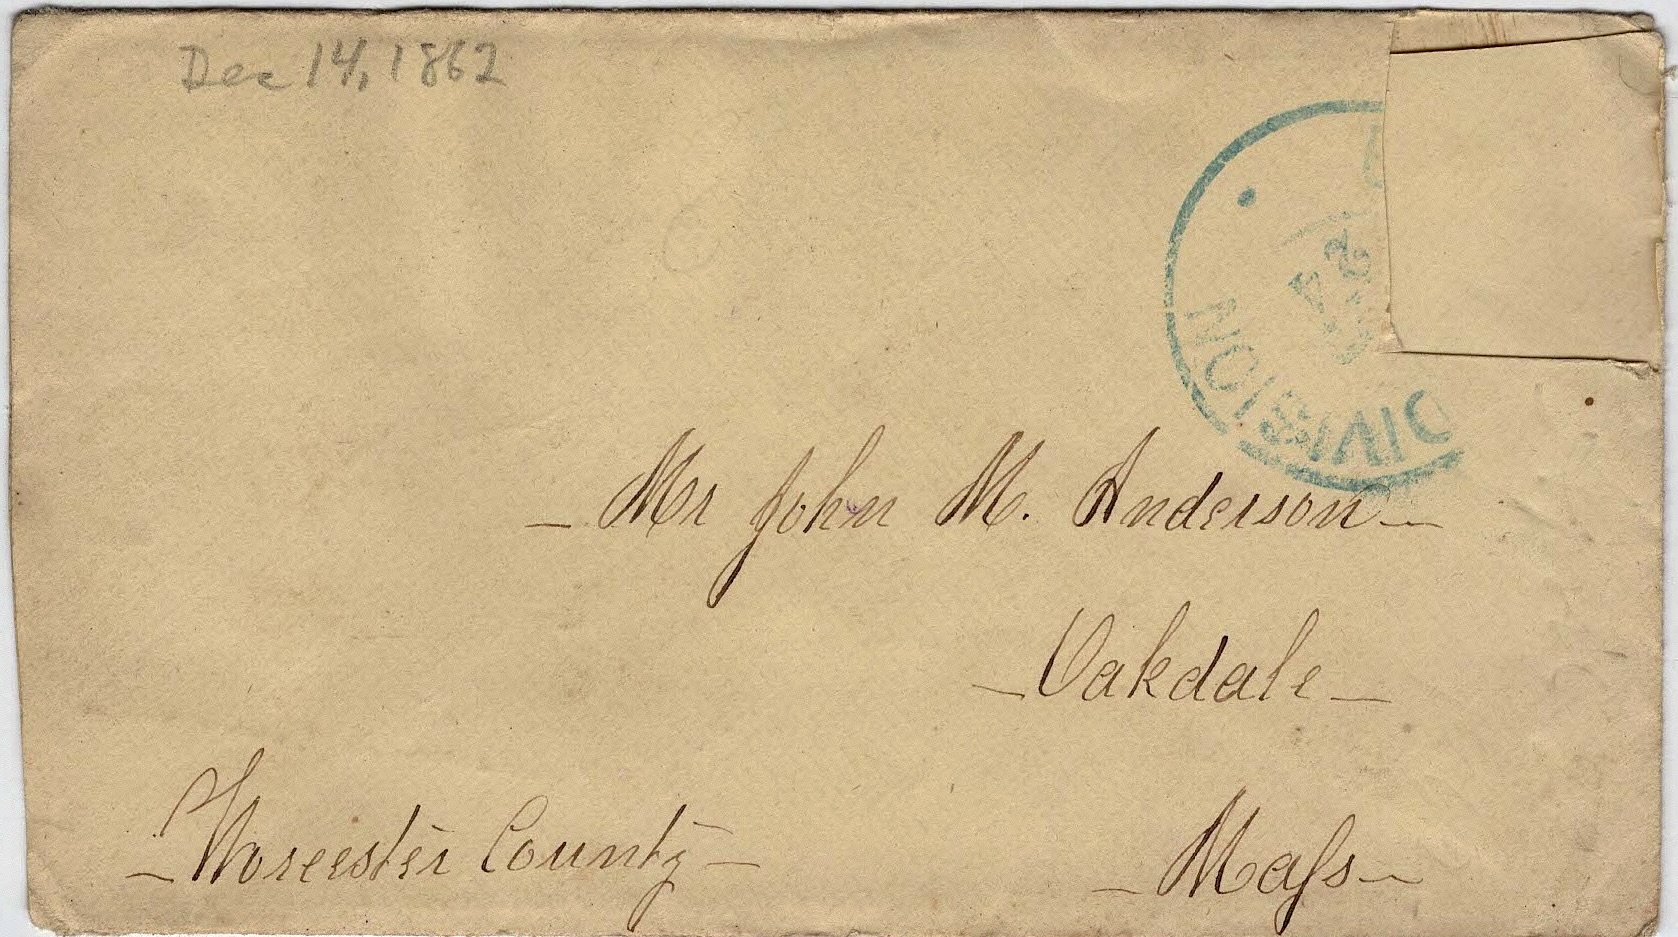 Dec 14, 1862
DIVISION
Mr John M. Anderson
Oakdale
Worcester County
Mass